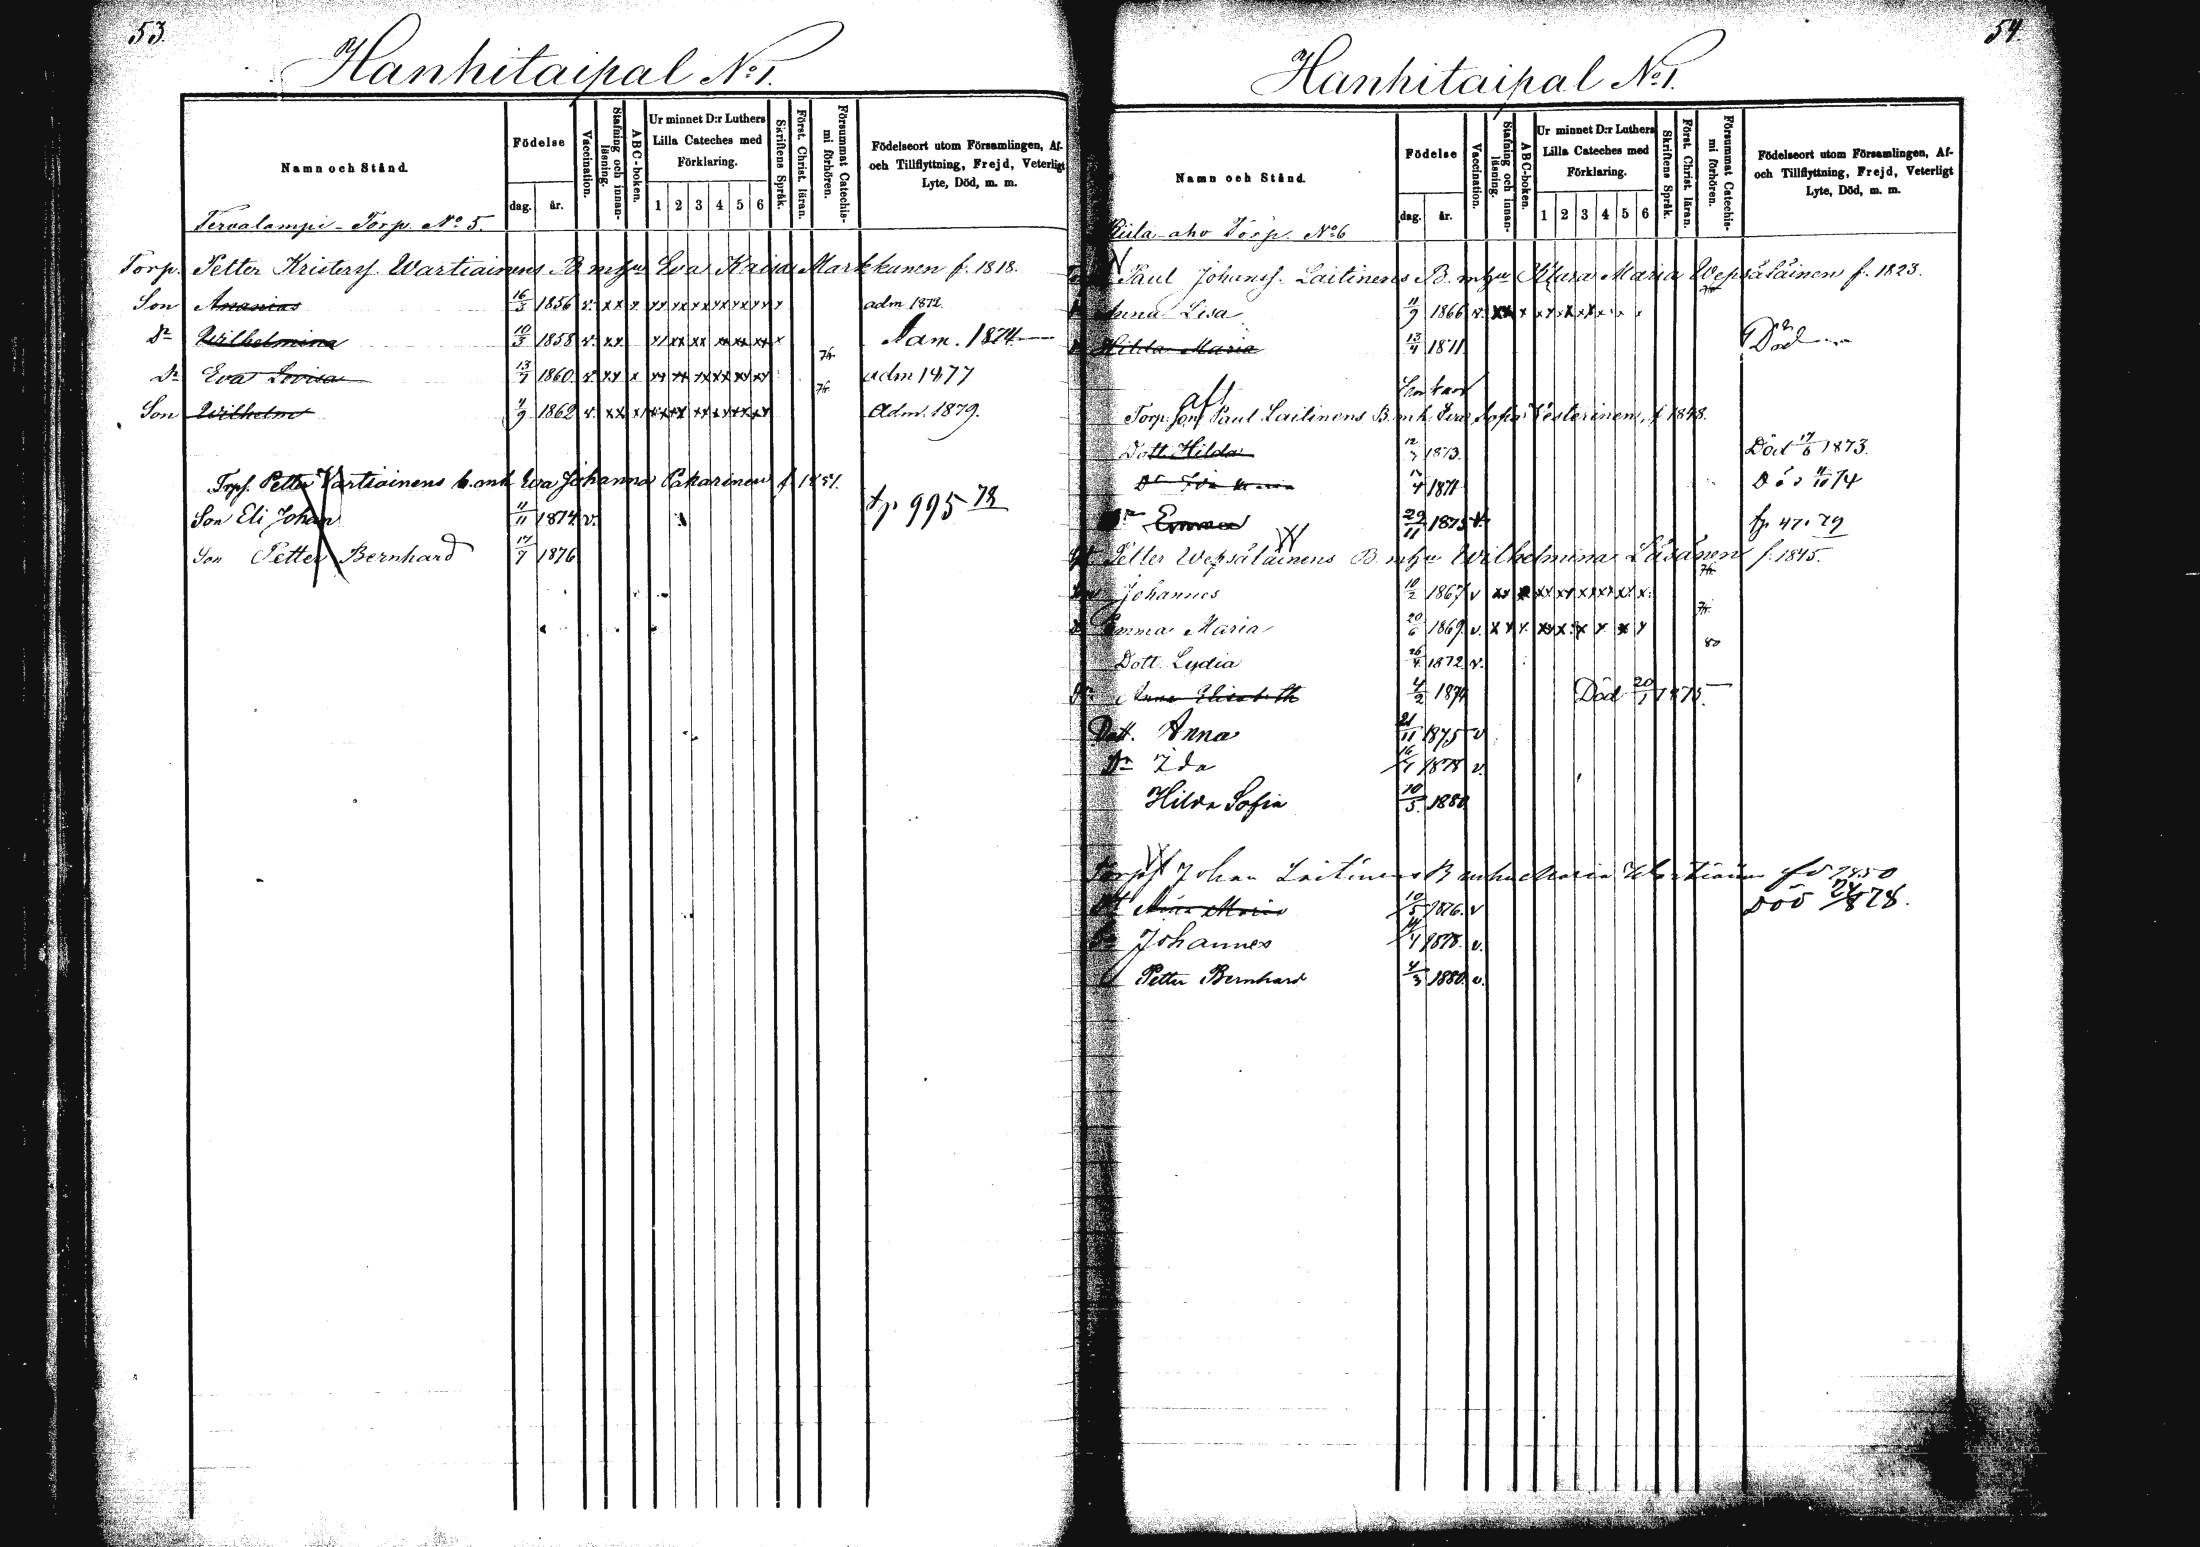 53.
Hanhitaipal No 1.
Namn och Stånd.
Födelse
dag. år.
Vaccination.
Stafning och innanläsning.
ABC-boken.
Ur minnet D:r Luthers Lilla Cateches med Förklaring.
1 2 3 4 5 6
Skriftens Språk.
Först. Christ. läran.
Försummat Catechismi förhören.
Födelseort utom Församlingen, Af- och Tillflyttning, Frejd, Veterligt Lyte, Död, m. m.
Tervalampi - Torp. No 5.
Torp. Petter Kristerss. Wartiainens B. m hu Eva Kaisa Markkanen f. 1818.
Son Ananias 16/3 1856 v. adm 1872.
Dr Wilhelmina 10/3 1858 v. Adm. 1874
Dr Eva Lovisa 13/7 1860 v. adm 1877
Son Wilhelm 4/9 1862 v. Adm. 1879.
Torpf. Petter Vartiainens b. m h Eva Johanna Pakarinen f. 1851.
Son Eli Johan 11/11 1874 v. tp 995 78
Son Petter Bernhard 17/7 1876
54.
Hanhitaipal No 1.
Namn och Stånd.
Födelse
dag. år.
Vaccination.
Stafning och innanläsning.
ABC-boken.
Ur minnet D:r Luthers Lilla Cateches med Förklaring.
1 2 3 4 5 6
Skriftens Språk.
Först. Christ. läran.
Försummat Catechismi förhören.
Födelseort utom Församlingen, Af- och Tillflyttning, Frejd, Veterligt Lyte, Död, m. m.
aho Torp. No 6
Paul Johanss. Laitinens B. m hu Klara Maria Wepsäläinen f. 1823.
Anna Lisa 11/9 1866 v.
Hilda Maria 13/4 1871 Död
Enkan
Torp. son aff Paul Laitinens B. m h Eva Sofia Vesterinen, f 1848.
Dott. Hilda 12/3 1873 Död 17/6 1873.
Dr Ida Maria 13/4 1871 Död 11/10 74
Dr Emma 29/11 1875 v. tp 471 79
Petter Wepsäläinens B. m hu Wilhelmina Läsänen f. 1845.
Johannes 10/2 1867 v
Emma Maria 20/6 1869 v.
80
Dott. Lydia 26/4 1872 v.
Dr Anna Elisabeth 4/2 1874 Död 20/1 1875.
Dott. Anna 21/11 1875 v
Dr Ida 16/1 1878 v.
Hilda Sofia 10/5 1880
Torps Johan Laitinens B m hu Maria Wartiainen fö 1850
Dtt Anna Maria 10/5 1876. v Död 24/8 78.
Sn Johannes 14/4 1878. v.
Petter Bernhard 4/3 1880. v.